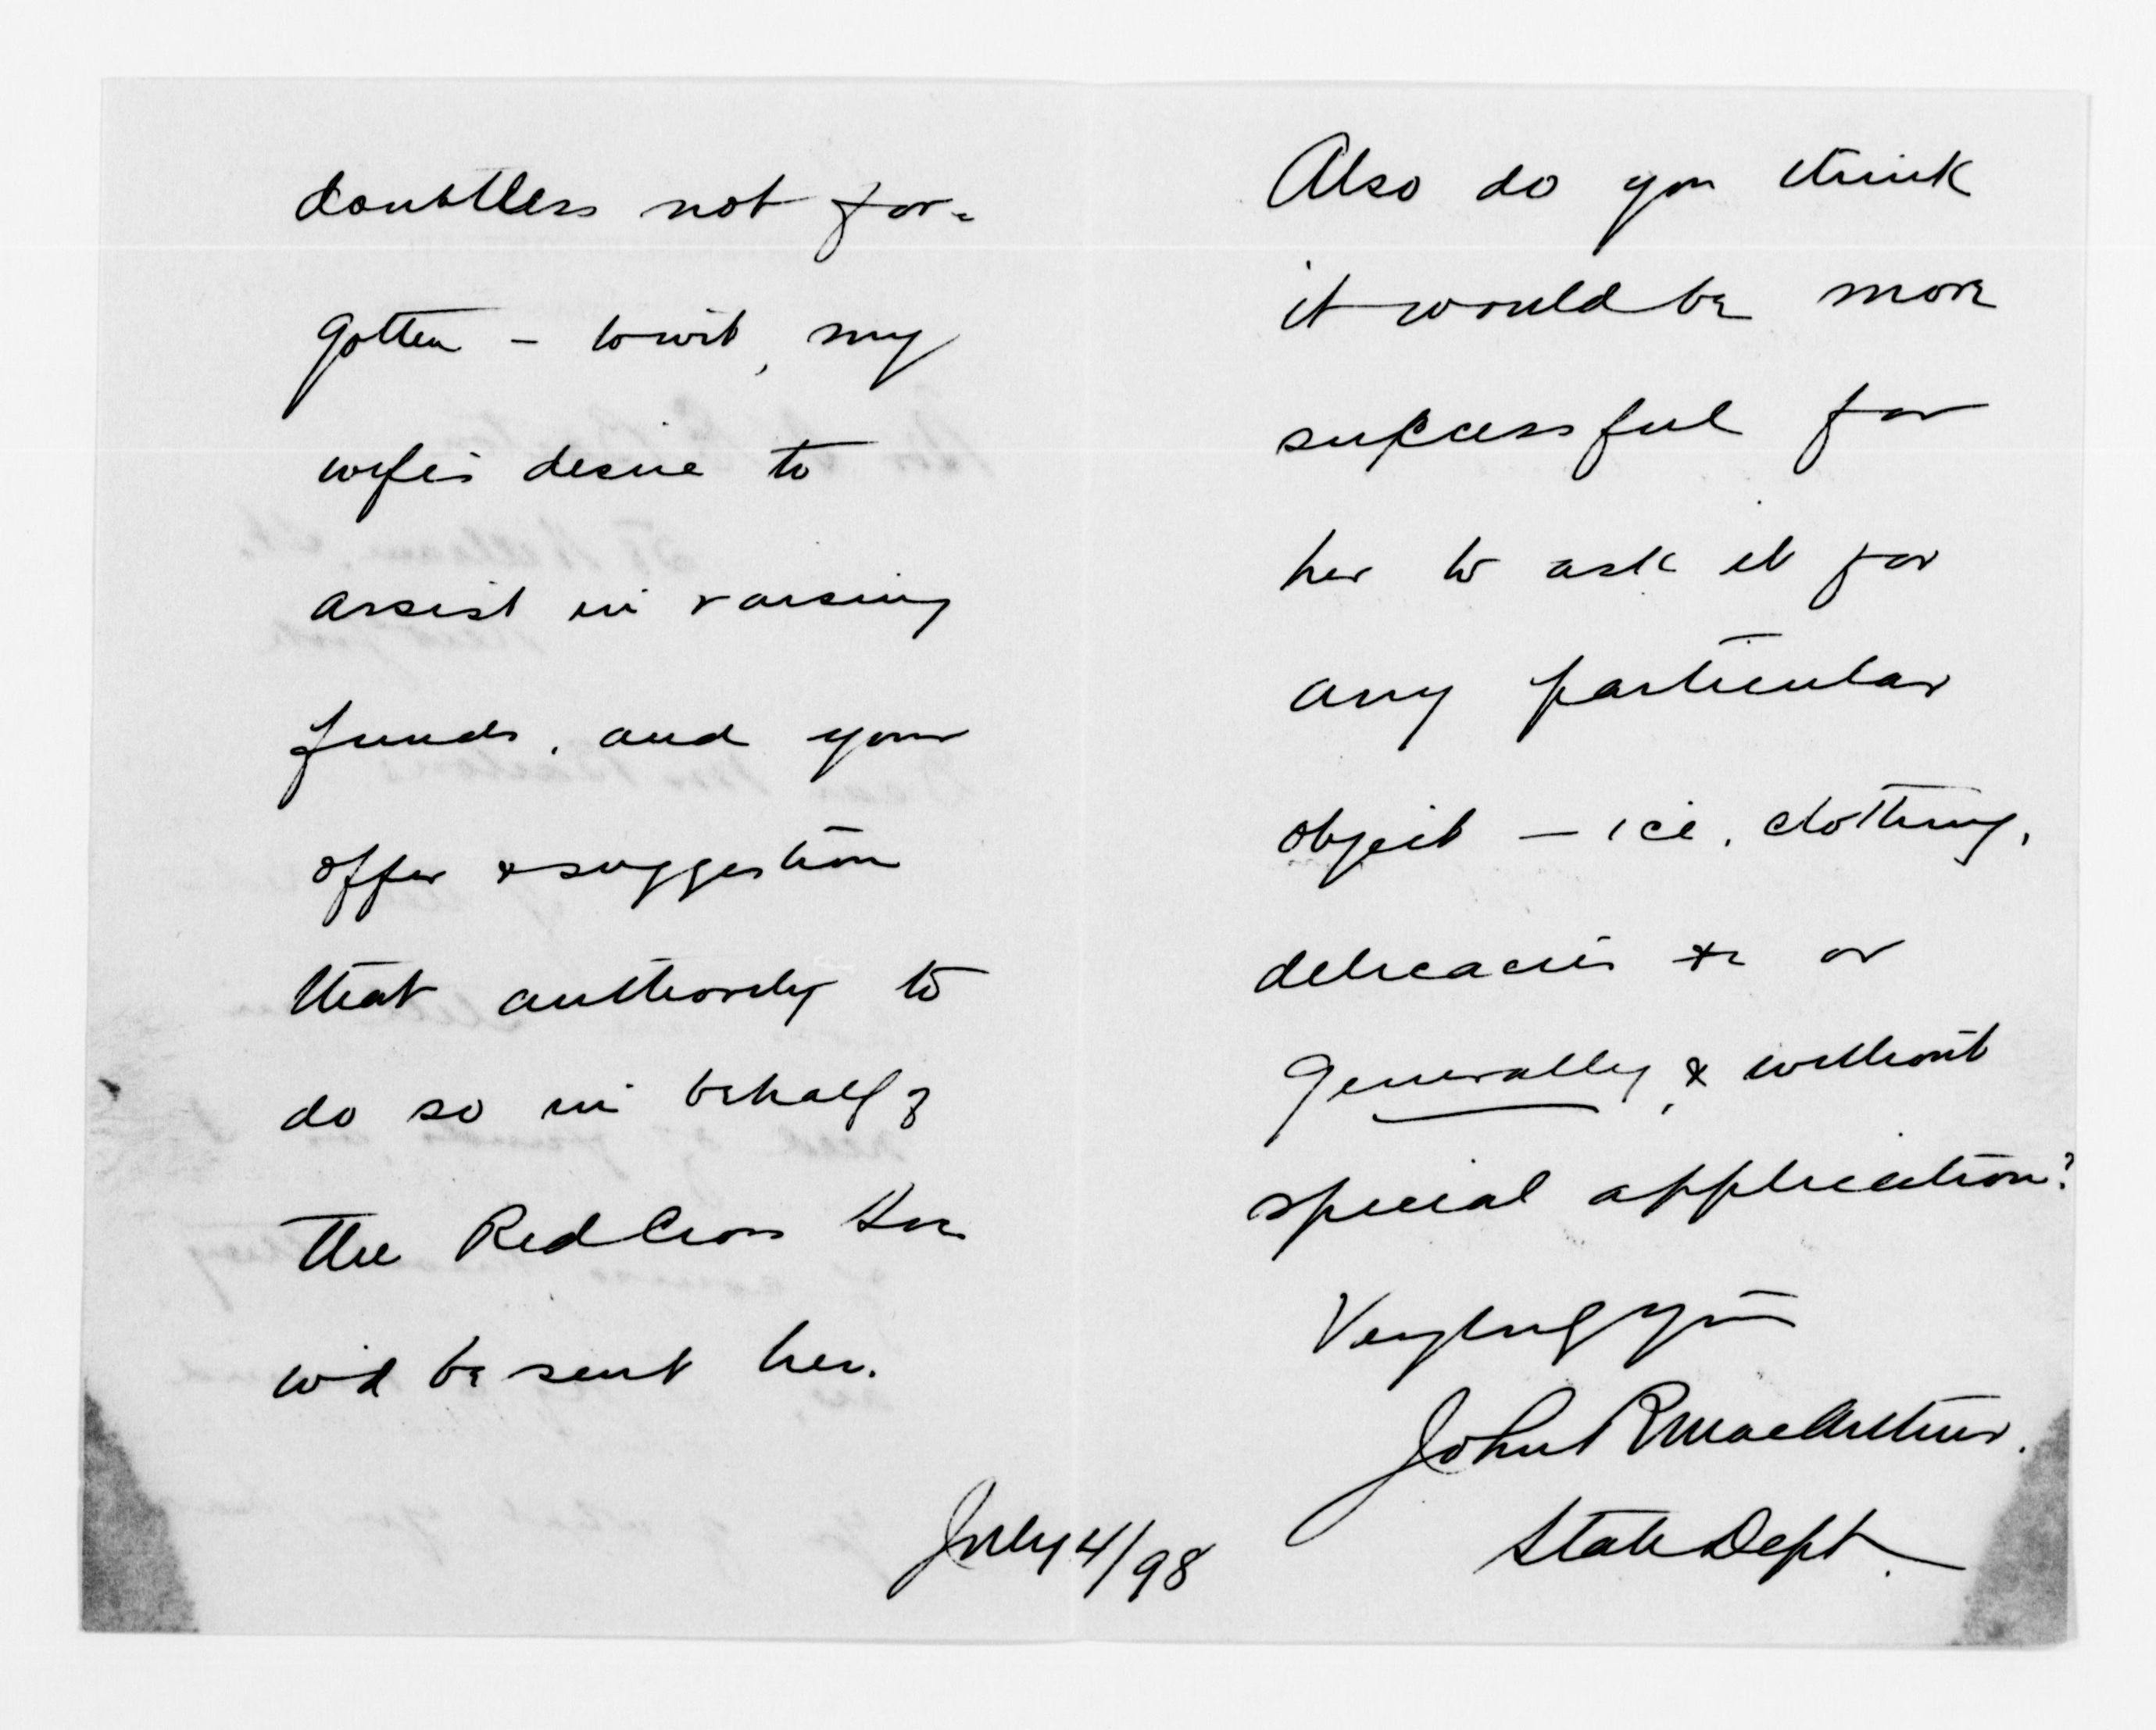 doubtless not for-
gotten - towit, my
wife's desire to
assist in raising
funds, and your
offer & suggestion
that authority to
do so in behalf of
the Red Cross Soc
w'd be sent her.
Also do you think
it would be more
successful for
her to ask it for
any particular
object — ice, clothing,
delicacies &c or
generally, & without
special application?
Very truly yours
John R MacArthur.
State Dept.
July 4/98